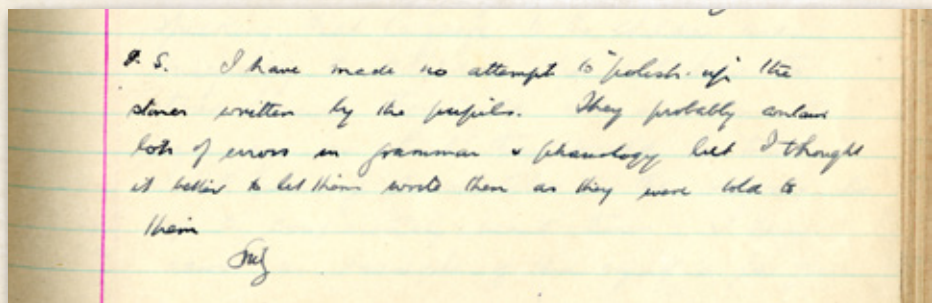 P. S. I have made no attempt to "polish-up" the
stories written by the pupils. They probably contain
lots of errors in grammar & phraseology but I thought
it better to let them write them as they were told to
them